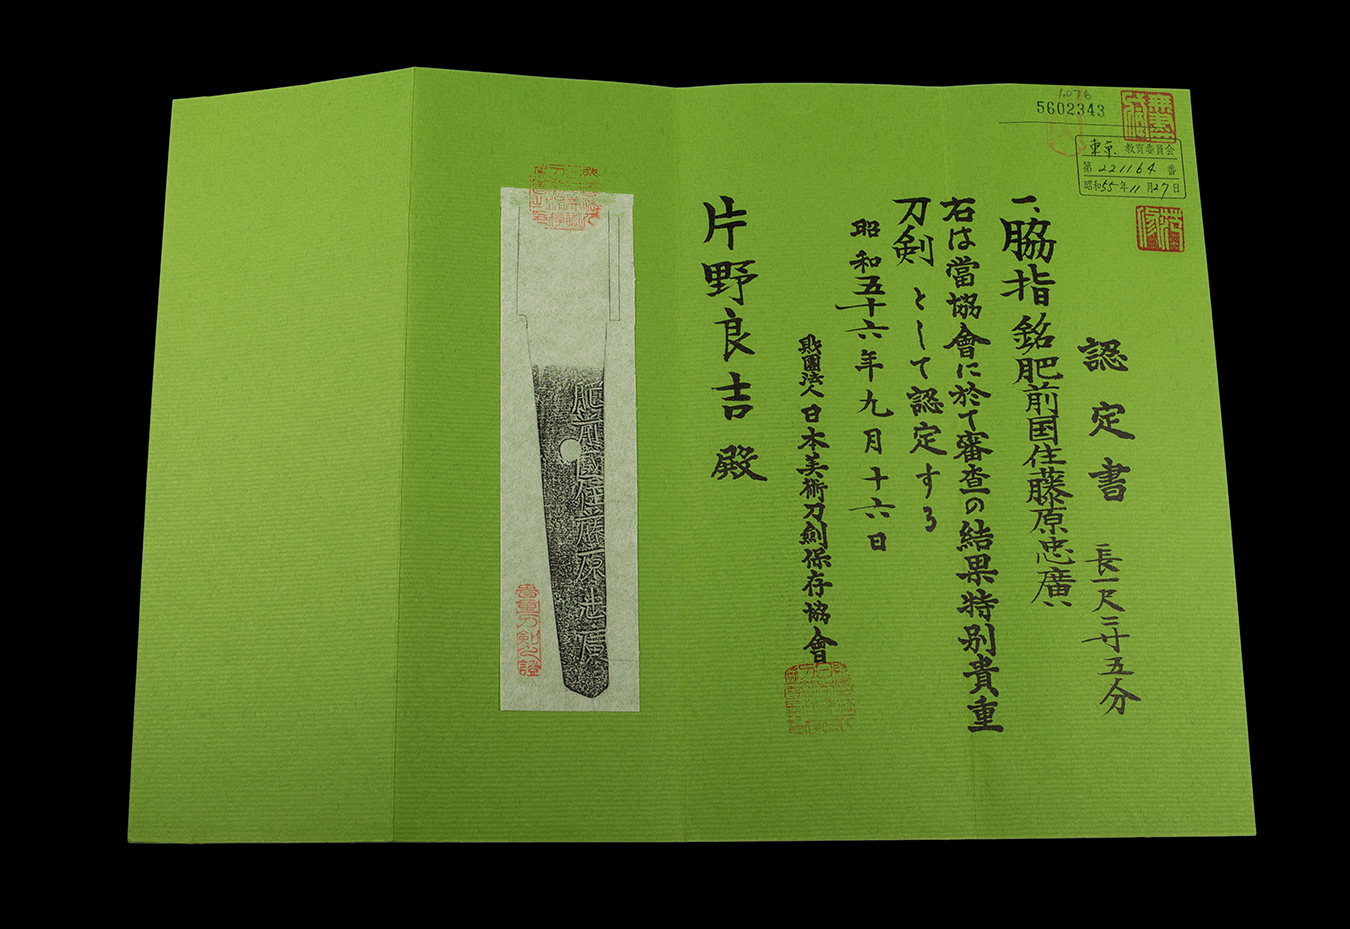 5602343
東京 教育委員会
第 221164 番
昭和55年11月27日
認定書
長一尺三寸五分
一、脇指 銘肥前国住藤原忠廣
右は當協會に於て審査の結果特別貴重
刀剣として認定する
昭和五十六年九月十六日
財團法人 日本美術刀剣保存協會
片野良吉殿
肥前國住藤原忠廣
貴重刀剣之證